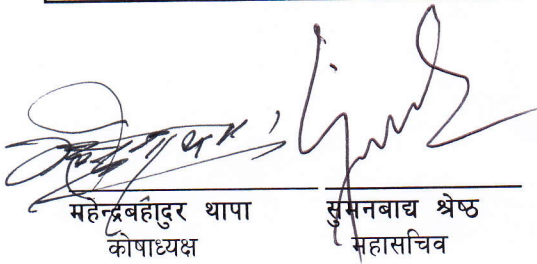 महेन्द्रबहादुर थापा
कोषाध्यक्ष
सुमनबाद्य श्रेष्ठ
महासचिव